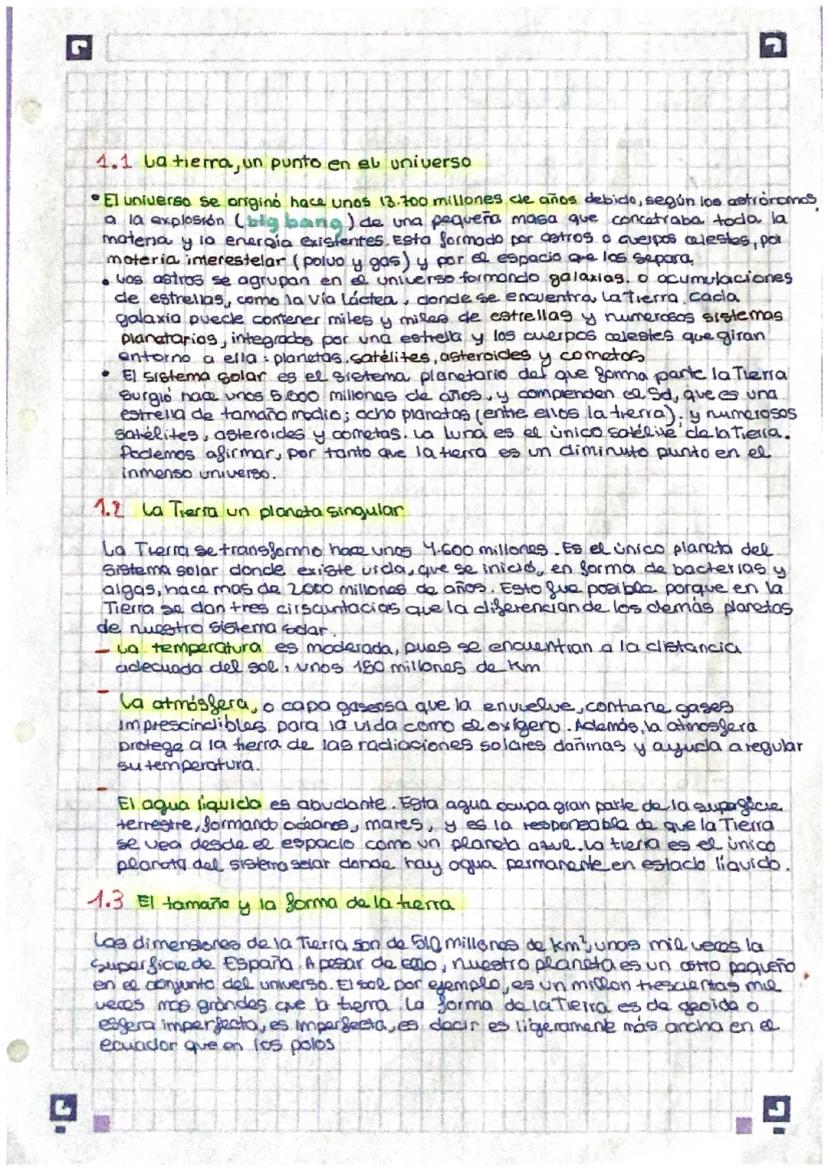 1.1 La tierra, un punto en el universo
• El universo se originó hace unos 13.700 millones de años debido, según los astrónomos,
a la explosión (big bang) de una pequeña masa que concatraba toda la
materia y la energía existentes. Esta formado por astros o cuerpos celestes, por
materia interestelar (polvo y gas) y por el espacio que los separa.
• Los astros se agrupan en el universo formando galaxias. o acumulaciones
de estrellas, como la Vía Láctea, donde se encuentra la Tierra. Cada
galaxia puede contener miles y miles de estrellas y numerosos sistemas
planetarios, integrados por una estrella y los cuerpos celestes que giran
entorno a ella: planetas, satélites, asteroides y cometas
• El sistema solar es el sistema planetario del que forma parte la Tierra
surgió hace unos 5.000 millones de años, y comprenden el Sol, que es una
estrella de tamaño medio; ocho planetas (entre ellos la tierra); y numerosos
satélites, asteroides y cometas. La luna es el único satélite de la Tierra.
Podemos afirmar, por tanto que la tierra es un diminuto punto en el
inmenso universo.
1.2 La Tierra un planeta singular
La Tierra se transformo hace unos 4.600 millones. Es el único planeta del
sistema solar donde existe vida, que se inició, en forma de bacterias y
algas, hace mas de 2000 millones de años. Esto fue posible porque en la
Tierra se dan tres cirscuntacias que la diferencian de los demás planetas
de nuestro sistema solar.
- La temperatura es moderada, pues se encuentran a la distancia
adecuada del sol: unos 150 millones de Km
-
La atmósfera, o capa gaseosa que la envuelve, contiene gases
imprescindibles para la vida como el oxígero. Además, la atmosfera
protege a la tierra de las radiaciones solares dañinas y ayuda a regular
su temperatura.
-
El agua líquida es abudante. Esta agua ocupa gran parte de la superficie
terrestre, formando océanos, mares, y es la responsable de que la Tierra
se vea desde el espacio como un planeta azul. La tierra es el único
planeta del sistema solar donde hay agua permanente en estado líquido.
1.3 El tamaño y la forma de la tierra
Las dimensiones de la Tierra son de 510 millones de km², unos mil veces la
superficie de España. A pesar de ello, nuestro planeta es un astro pequeño
en el conjunto del universo. El sol por ejemplo, es un millon trescientas mil
veces mas grandes que la tierra. La forma de la Tierra es de geoida o
esfera imperfecta, es imperfecta, es decir es ligeramente más ancha en el
ecuador que en los polos